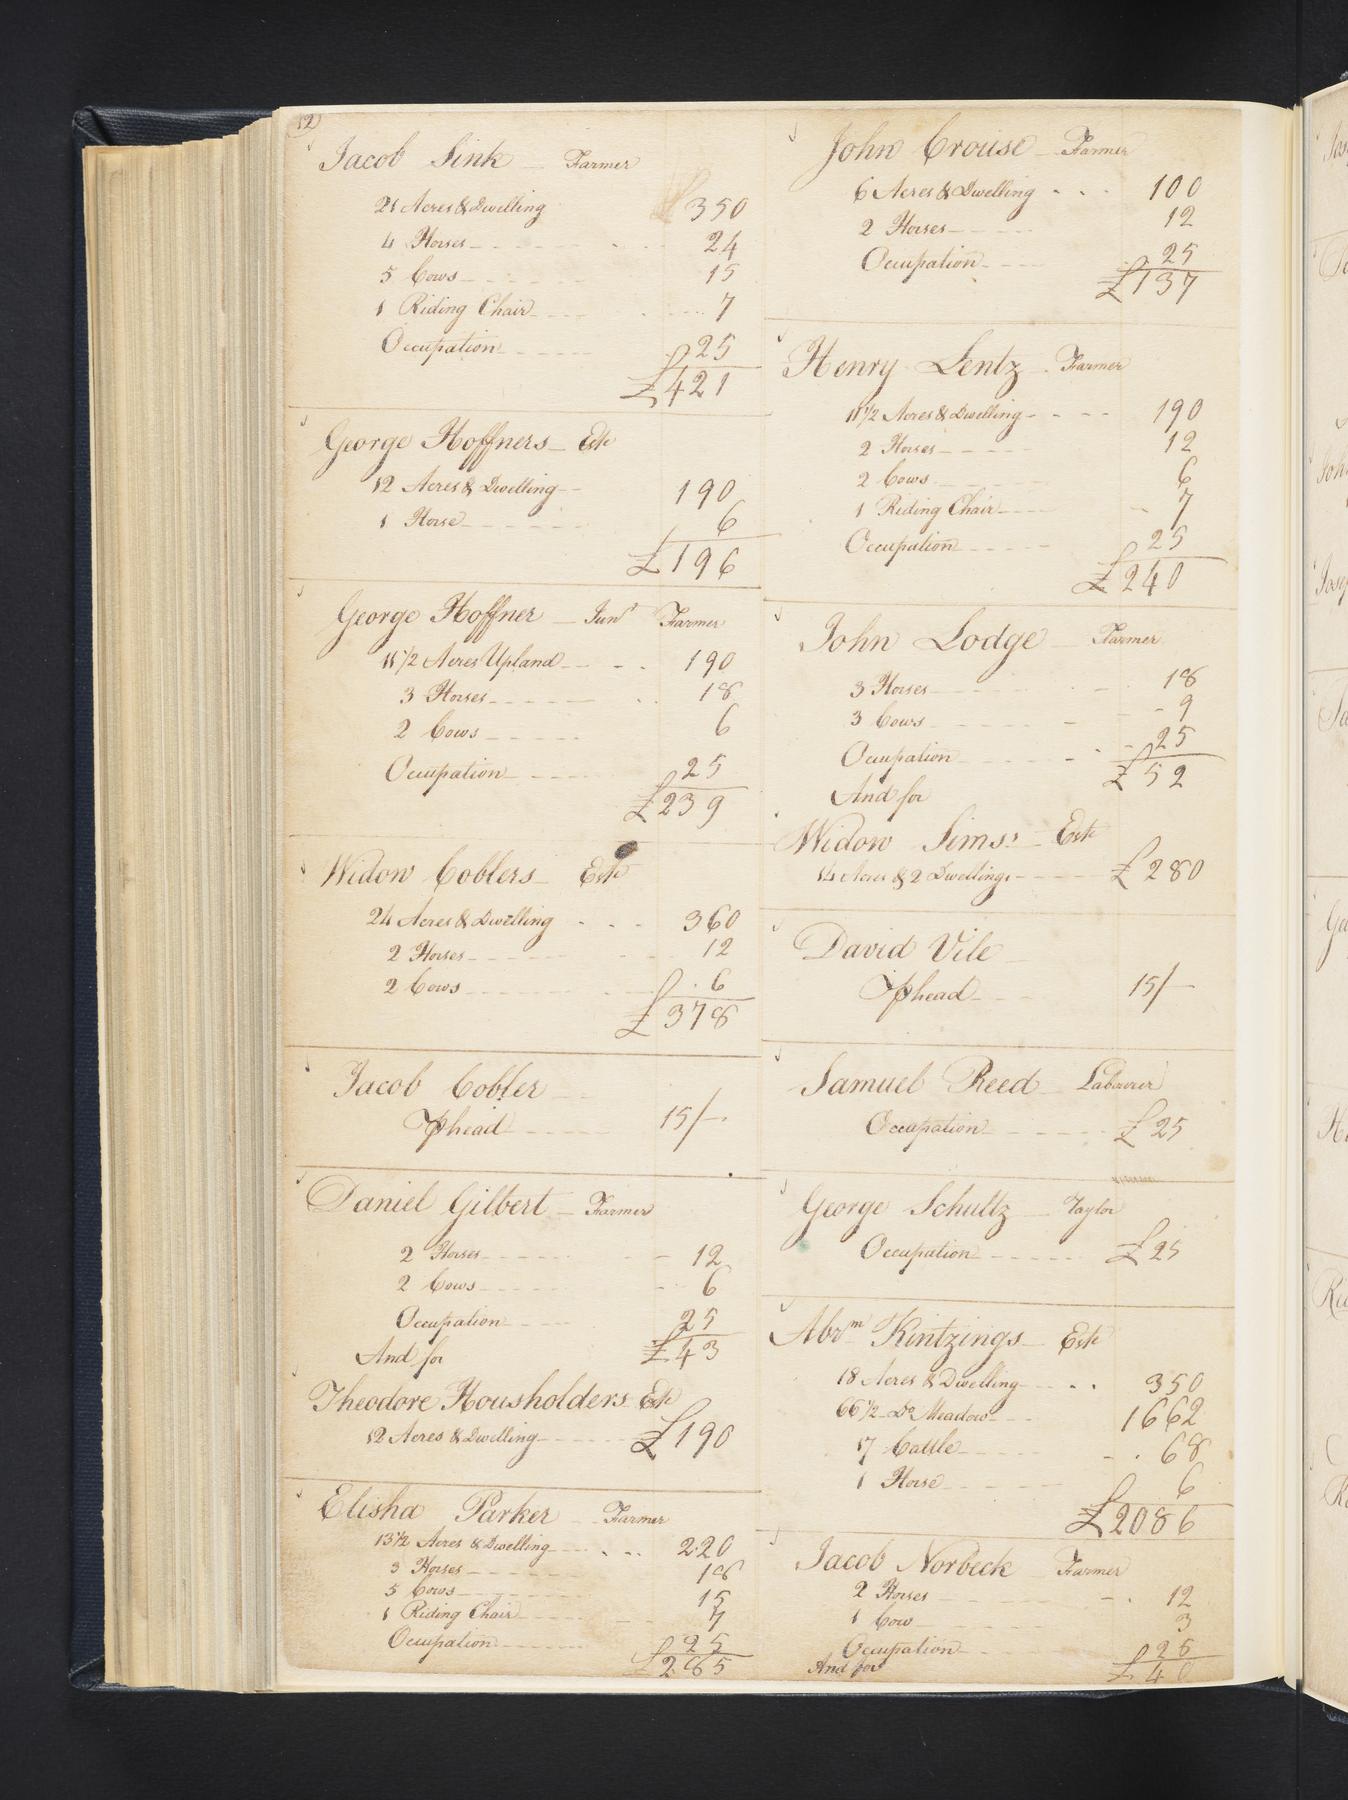 12
Jacob Sink Farmer
21 Acres & Dwelling 350
4 Horses 24
5 Cows 15
1 Riding Chair 7
Occupation 25
£421
George Hoffners Este
12 Acres & Dwelling 190
1 Horse 6
£196
George Hoffner Junr Farmer
11 1/2 Acres Upland 190
3 Horses 18
2 Cows 6
Occupation 25
£239
Widow Coblers Este
24 Acres & Dwelling 360
2 Horses 12
2 Cows 6
£378
Jacob Cobler
Pr head 15/-
Daniel Gilbert Farmer
2 Horses 12
2 Cows 6
Occupation 25
£43
And for
Theodore Housholders Este
12 Acres & Dwelling £190
Elisha Parker Farmer
13 1/2 Acres & Dwelling 220
3 Horses 18
5 Cows 15
1 Riding Chair 7
Occupation 25
£285
John Crouse Farmer
6 Acres & Dwelling 100
2 Horses 12
Occupation 25
£137
Henry Lentz Farmer
11 1/2 Acres & Dwelling 190
2 Horses 12
2 Cows 6
1 Riding Chair 7
Occupation 25
£240
John Lodge Farmer
3 Horses 18
3 Cows 9
Occupation 25
£52
And for
Widow Sims's Este
14 Acres & 2 Dwellings £280
David Vile
Pr head 15/-
Samuel Reed Labourer
Occupation £25
George Schultz Taylor
Occupation £25
Abrm Kintzings Este
18 Acres & Dwelling 350
66 1/2 Do Meadow 1662
17 Cattle 68
1 Horse 6
£2086
Jacob Norbeck Farmer
2 Horses 12
1 Cow 3
Occupation 25
£40
And for